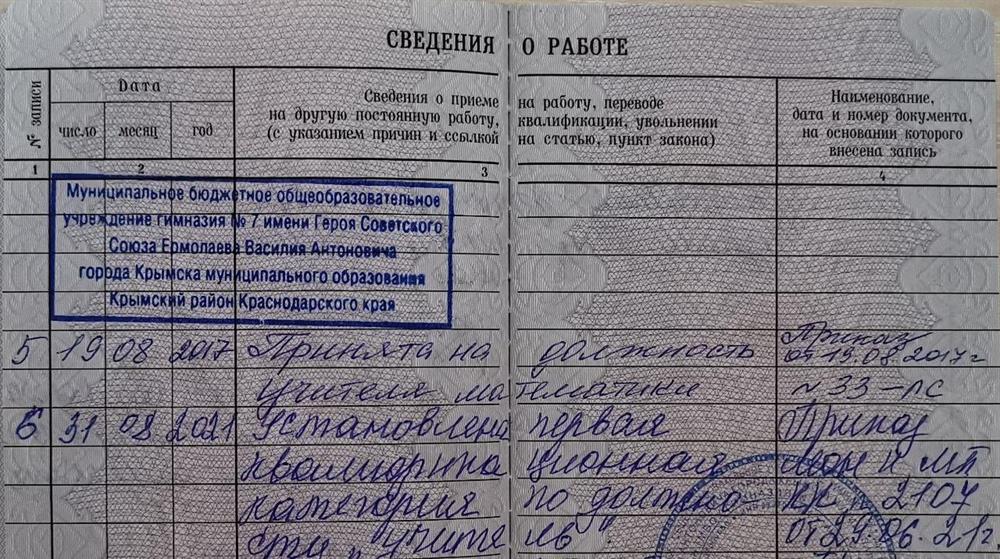 СВЕДЕНИЯ О РАБОТЕ
№ записи
Дата
число месяц год
Сведения о приеме на работу, переводе
на другую постоянную работу, квалификации, увольнении
(с указанием причин и ссылкой на статью, пункт закона)
Наименование,
дата и номер документа,
на основании которого
внесена запись
1 2 3 4
Муниципальное бюджетное общеобразовательное
учреждение гимназия № 7 имени Героя Советского
Союза Ермолаева Василия Антоновича
города Крымска муниципального образования
Крымский район Краснодарского края
5 19 08 2017 Принята на должность Приказ
от 19.08.2017г
учителя математики № 33-лс
6 31 08 2021 Установлена первая Приказ
квалификационная мон и мп
категория по должно кк. 2107
сти "учитель". от 29.06.21г.